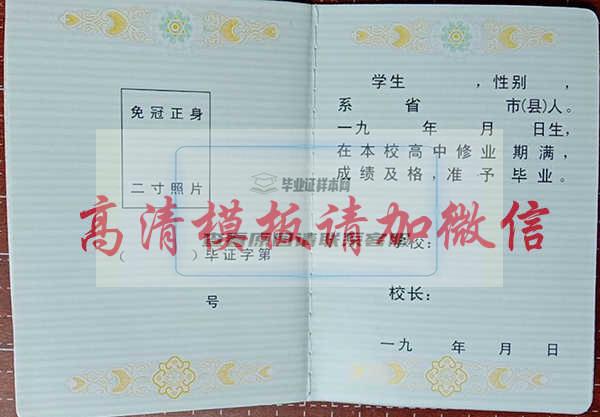 免冠正身
二寸照片
( )毕证字第
号
学生 ,性别 ,
系 省 市(县)人。
一九 年 月 日生,
在本校高中修业期满,
成绩及格,准予毕业。
学校:
校长:
一九 年 月 日
毕业证样本网
查看原图请联系客服
高清模板请加微信